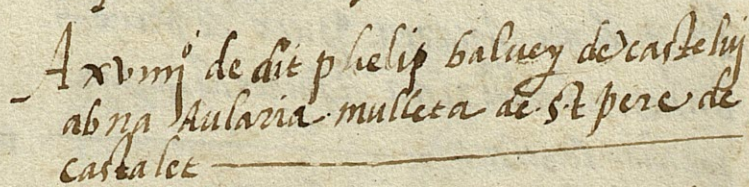 A xviiijº de dit phelip balvey de castelvy
ab na Aularia mulleta de st pere de
castalet